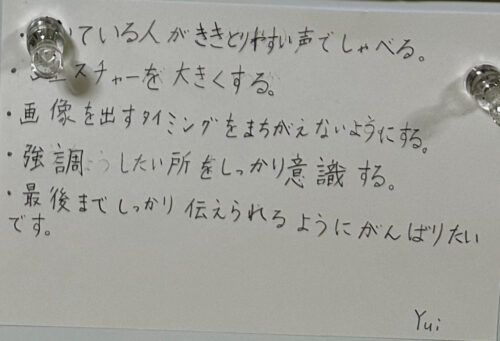 ・ ている人がききとりやすい声でしゃべる。
・ スチャーを大きくする。
・画像を出すタイミングをまちがえないようにする。
・強調うしたい所をしっかり意識する。
・最後までしっかり伝えられるようにがんばりたい
です。
Yui